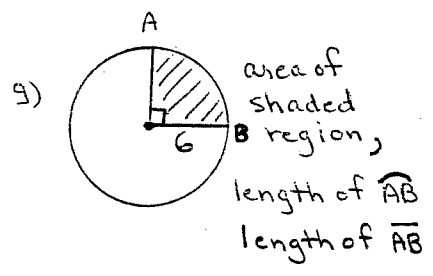 A
9)
area of
shaded
B region,
6
length of A͡B
length of A̅B̅